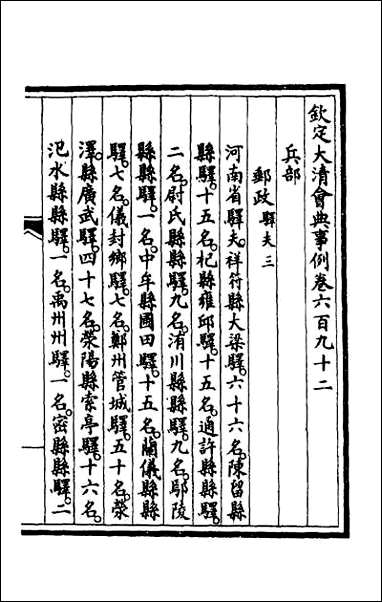 欽定大清會典事例卷六百九十二
兵部
郵政驛夫三
河南省驛夫。祥符縣大梁驛。六十六名。陳留縣
縣驛。十五名。杞縣雍邱驛。十五名。通許縣縣驛。
二名。尉氏縣縣驛。九名。洧川縣縣驛。九名。鄢陵
縣縣驛。一名。中牟縣圃田驛。十五名。蘭儀縣縣
驛。七名。儀封鄉驛。七名。鄭州管城驛。五十名。滎
澤縣廣武驛。四十七名。滎陽縣索亭驛。十六名。
汜水縣縣驛。一名。禹州州驛。一名。密縣縣驛。二